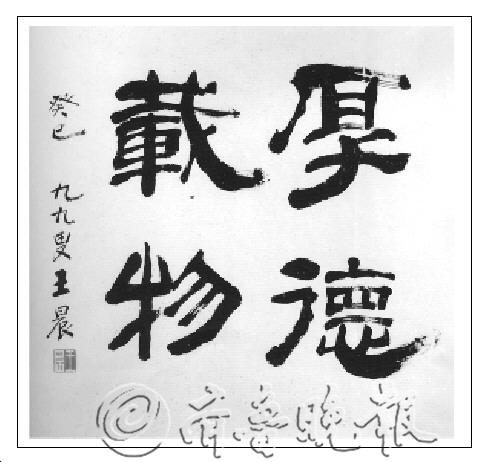 厚德
載物
癸巳 九九叟王晨
齐鲁晚报